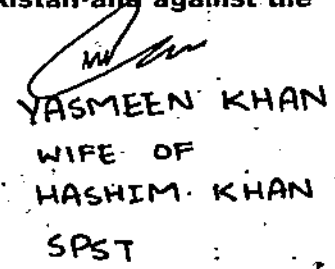 against the
YASMEEN KHAN
WIFE OF
HASHIM. KHAN
SPST